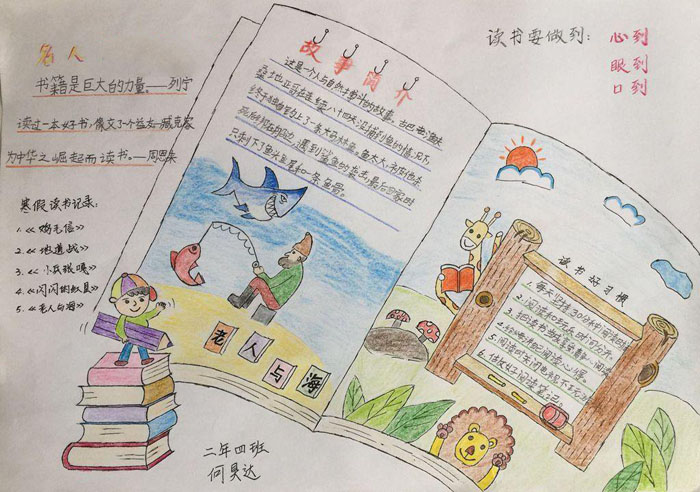 名人
书籍是巨大的力量——列宁
读过一本好书,像交了个益友—臧克家
为中华之崛起而读书。—周恩来
寒假读书记录:
1.《鸡毛信》
2.《地道战》
3.《小兵张嘎》
4.《闪闪的红星》
5.《老人与海》
故事简介
这是一个人与自然力搏斗的故事,古巴老渔夫
桑地亚哥在连续八十四天没捕到鱼的情况下,
终于独自钓上了一条大马林鱼,鱼太大,
遇到鲨鱼的袭击,最后回家时
只剩下了鱼头鱼尾和一条鱼骨。
老人与海
读书要做到:
心到
眼到
口到
读书好习惯
1.每天坚持30分钟阅读时间
2.阅读和玩乐时间分开。
4.给妈妈讲阅读心得。
二年四班
何贝达